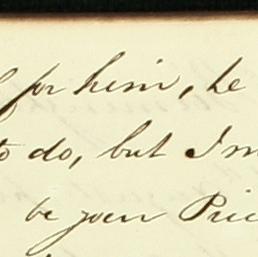 for him, he
to do, but I m
be your Pric